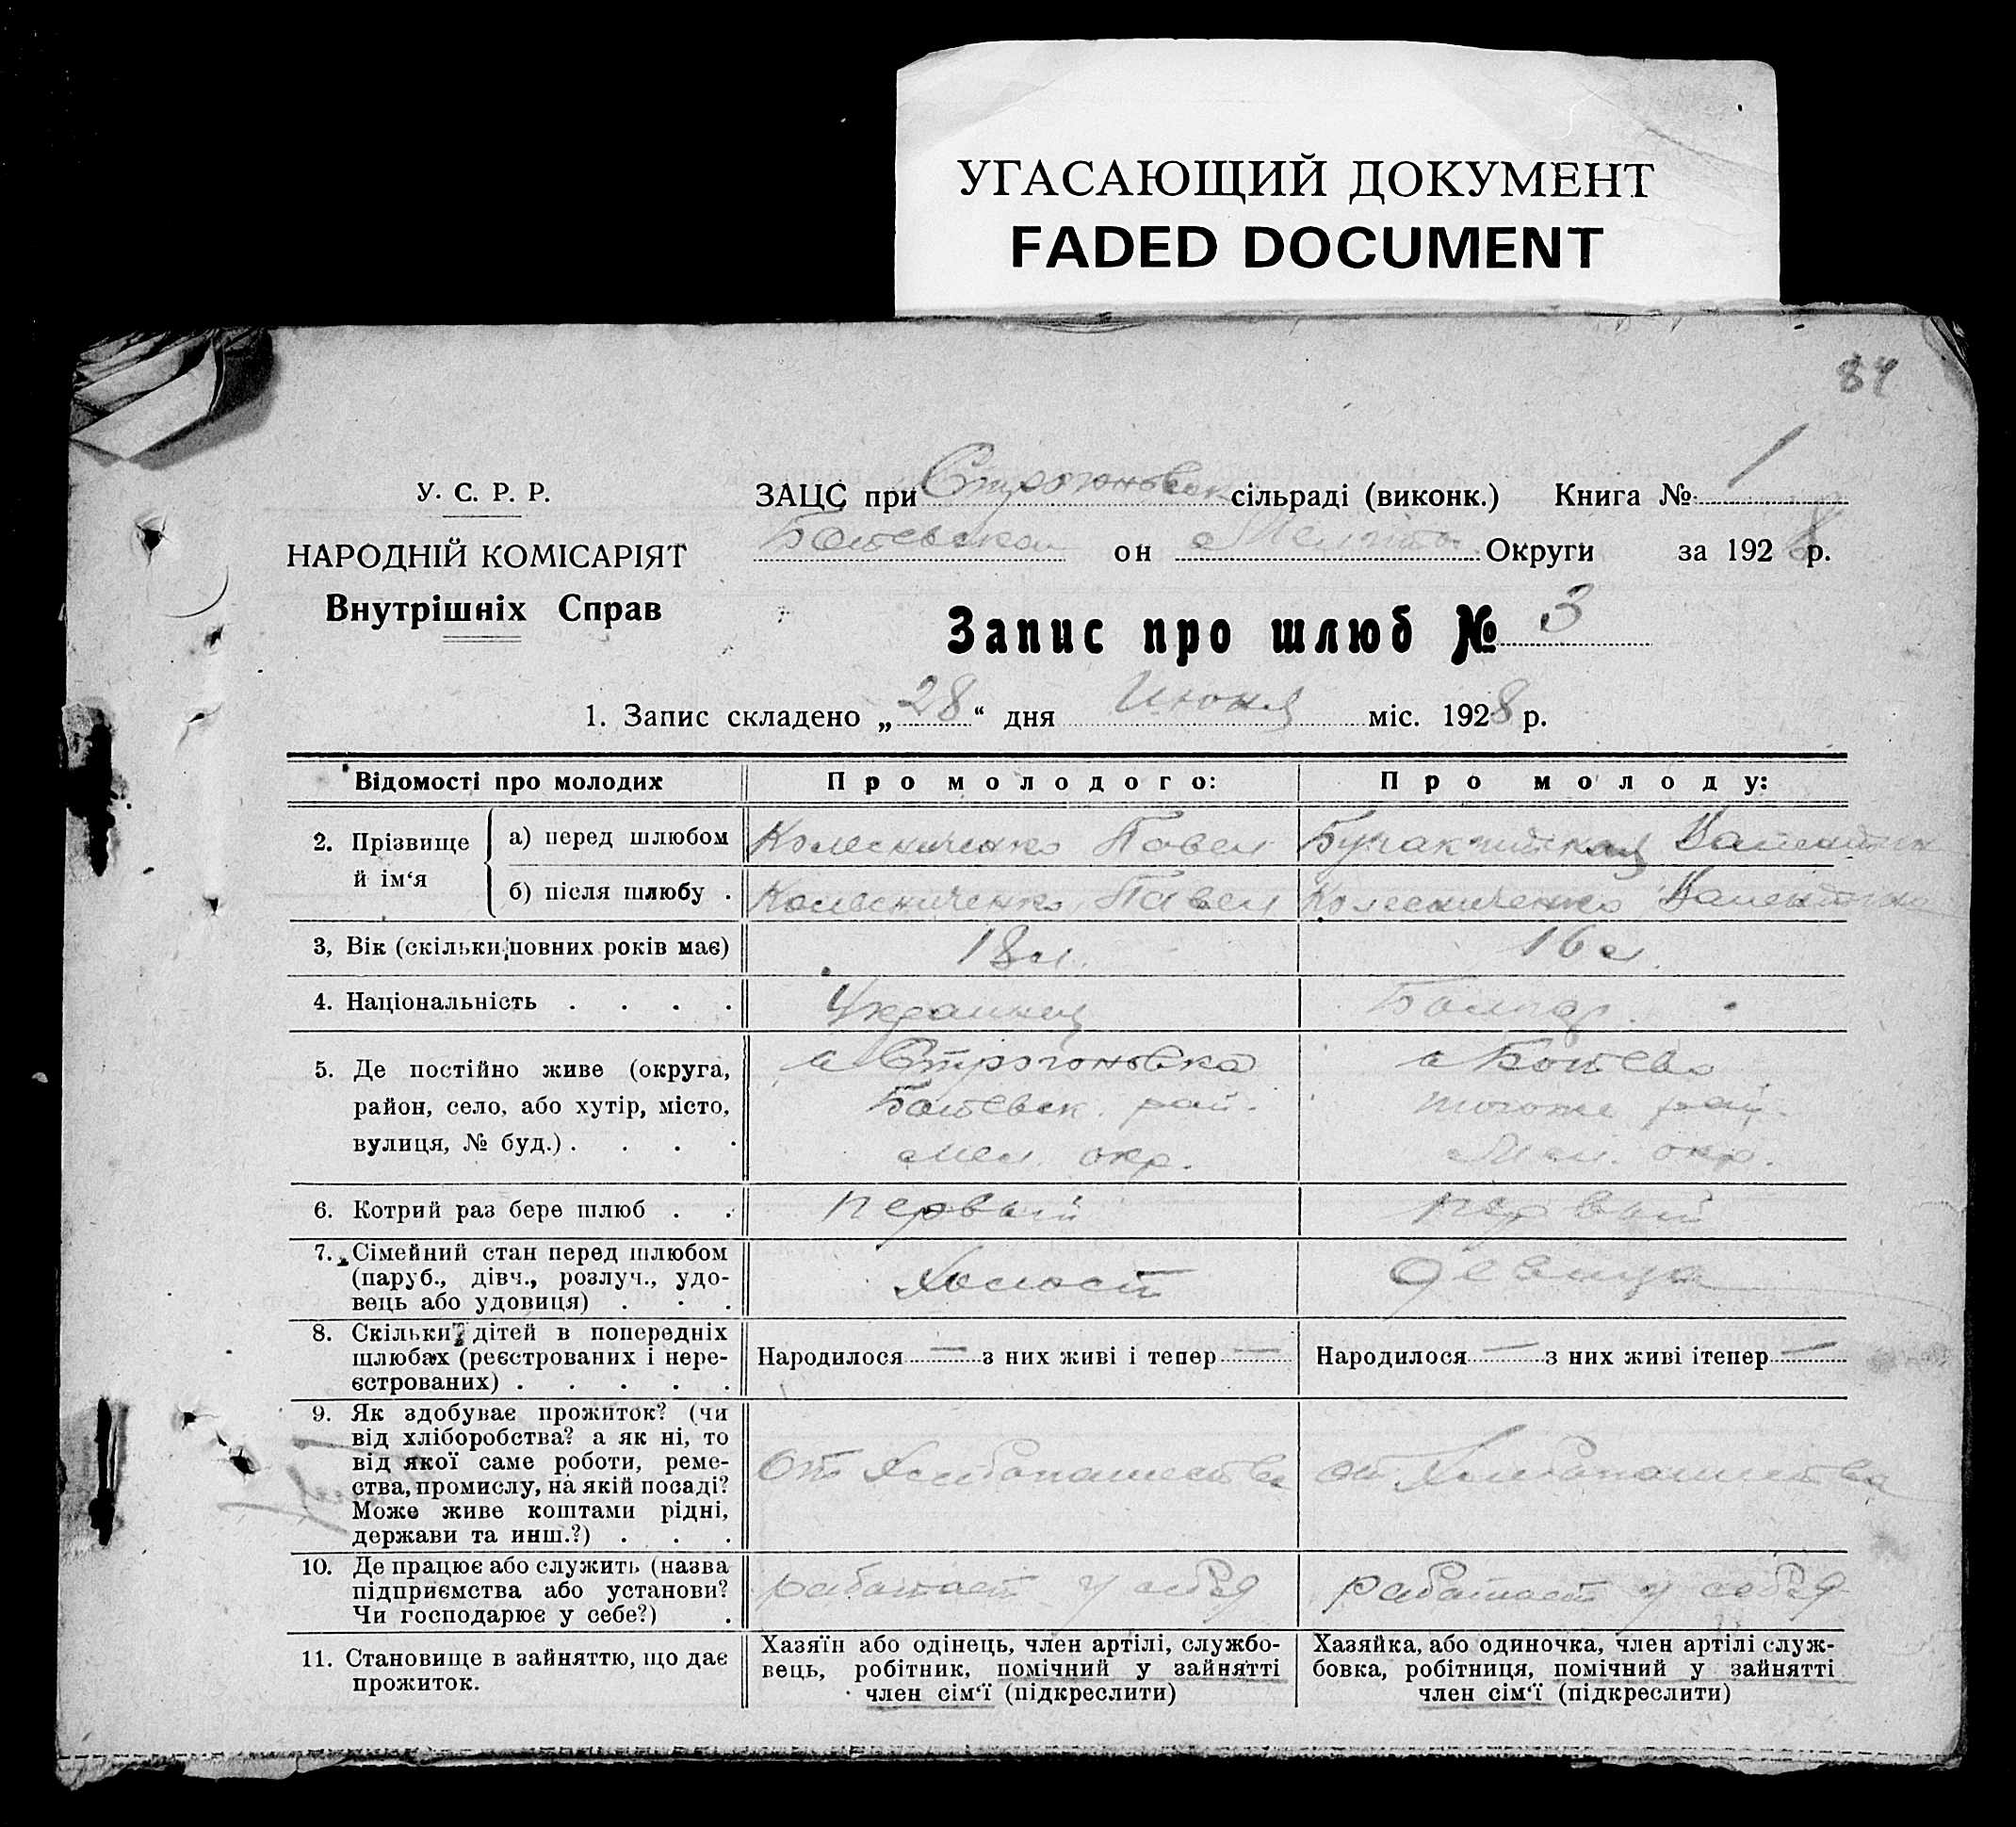 УГАСАЮЩИЙ ДОКУМЕНТ
FADED DOCUMENT
84
У. С. Р. Р.
НАРОДНІЙ КОМІСАРІЯТ
Внутрішніх Справ
ЗАЦС при Строгоновск сільраді (виконк.) Книга № 1
Ботевском он Мелито Округи за 1928 р.
Запис про шлюб № 3
1. Запис складено „28“ дня Июня міс. 1928 р.
Відомості про молодих
Про молодого:
Про молоду:
2. Прізвище й ім‘я
а) перед шлюбом
Колесниченко Павел
Валентин
б) після шлюбу .
Колесниченко Павел
Колесниченко Валентина
3, Вік (скільки повних років має)
18 л.
16 л.
4. Національність . . . .
Украинец
Болгар.
5. Де постійно живе (округа,
район, село, або хутір, місто,
вулиця, № буд.) . . . .
с Строгоновка
Ботевск. рай.
Мел. окр.
с Ботево
тогоже рай.
Мел. окр.
6. Котрий раз бере шлюб . .
первый
первый
7. Сімейний стан перед шлюбом
(паруб., дівч., розлуч., удо-
вець або удовиця) . . .
Холост
девица
8. Скільки дітей в попередніх
шлюбах (реєстрованих і нере-
єстрованих) . . . . .
Народилося — з них живі і тепер —
Народилося — з них живі ітепер —
9. Як здобуває прожиток? (чи
від хліборобства? а як ні, то
від якої саме роботи, реме-
ства, промислу, на якій посаді?
Може живе коштами рідні,
держави та инш.?) . . .
От Хлебопашества
от Хлебопашества
10. Де працює або служить (назва
підприємства або установи?
Чи господарює у себе?) .
работает у себя
работает у себя
11. Становище в зайняттю, що дає
прожиток.
Хазяїн або одінець, член артілі, службо-
вець, робітник, помічний у зайнятті
член сім‘ї (підкреслити)
Хазяйка, або одиночка, член артілі служ-
бовка, робітниця, помічний у зайнятті
член сім‘ї (підкреслити)